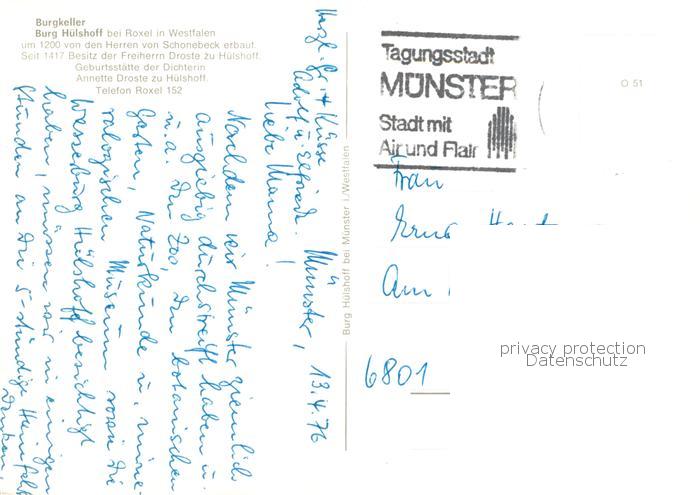 Burgkeller
Burg Hülshoff bei Roxel in Westfalen
um 1200 von den Herren von Schonebeck erbaut.
Seit 1417 Besitz der Freiherrn Droste zu Hülshoff.
Geburtsstätte der Dichterin
Annette Droste zu Hülshoff.
Telefon Roxel 152
Münster, 13.4.76
Liebe Mama!
Nachdem wir Münster ziemlich
ausgiebig durchstreift haben u.
u.a. den Zoo, den botanischen
Garten, Naturkunde u. mine-
ralogischen Museum sowie die
Wasserburg Hülshoff besichtigt
haben, müssen wir in einigen
Stunden an die 5-stündige Heimfahrt
denken.
Herzl. Gr. + Küsse
Adolf u. Elfriede
Burg Hülshoff bei Münster i./Westfalen
Tagungsstadt
MÜNSTER
Stadt mit
Air und Flair
O 51
Frau
Erna
Am
6801
privacy protection
Datenschutz